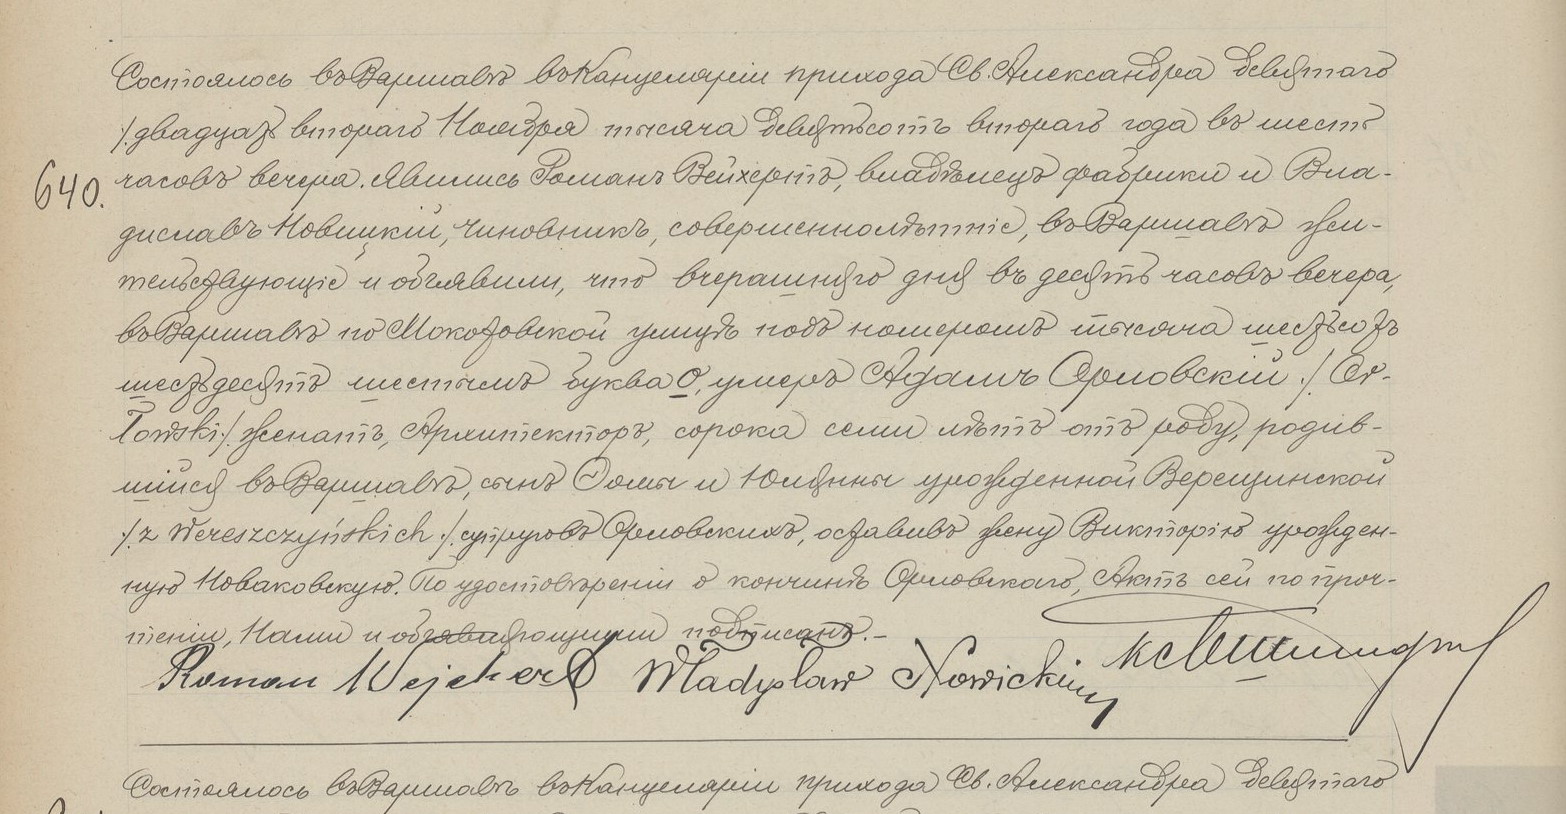 Состоялось въ Варшавѣ въ Канцеляріи прихода Св. Александра девятаго
/двадцать втораго Ноября тысяча девятьсотъ втораго года въ шесть
640. часовъ вечера. Явились Романъ Вейхертъ, владѣлецъ фабрики и Вла-
диславъ Новицкій, чиновникъ, совершеннолѣтніе, въ Варшавѣ жи-
тельствующіе и объявили, что вчерашняго дня въ десять часовъ вечера,
въ Варшавѣ по Мокотовской улицѣ подъ номеромъ тысяча шестьсотъ
шестьдесятъ шестымъ буква О, умеръ Адамъ Орловскій ./ Or-
łowski ./ женатъ, Архитекторъ, сорока семи лѣтъ отъ роду, родив-
шійся въ Варшавѣ, сынъ Ѳомы и Юліянны урожденной Верещинской
./ z Wereszczyńskich ./ супруговъ Орловскихъ, оставивъ жену Викторію урожден-
ную Новаковскую. По удостовѣреніи о кончинѣ Орловскаго, Актъ сей по проч-
теніи, Нами и объявляющими подписанъ.–
Roman Wejchert Władysław Nowicki
Состоялось въ Варшавѣ въ Канцеляріи прихода Св. Александра девятаго